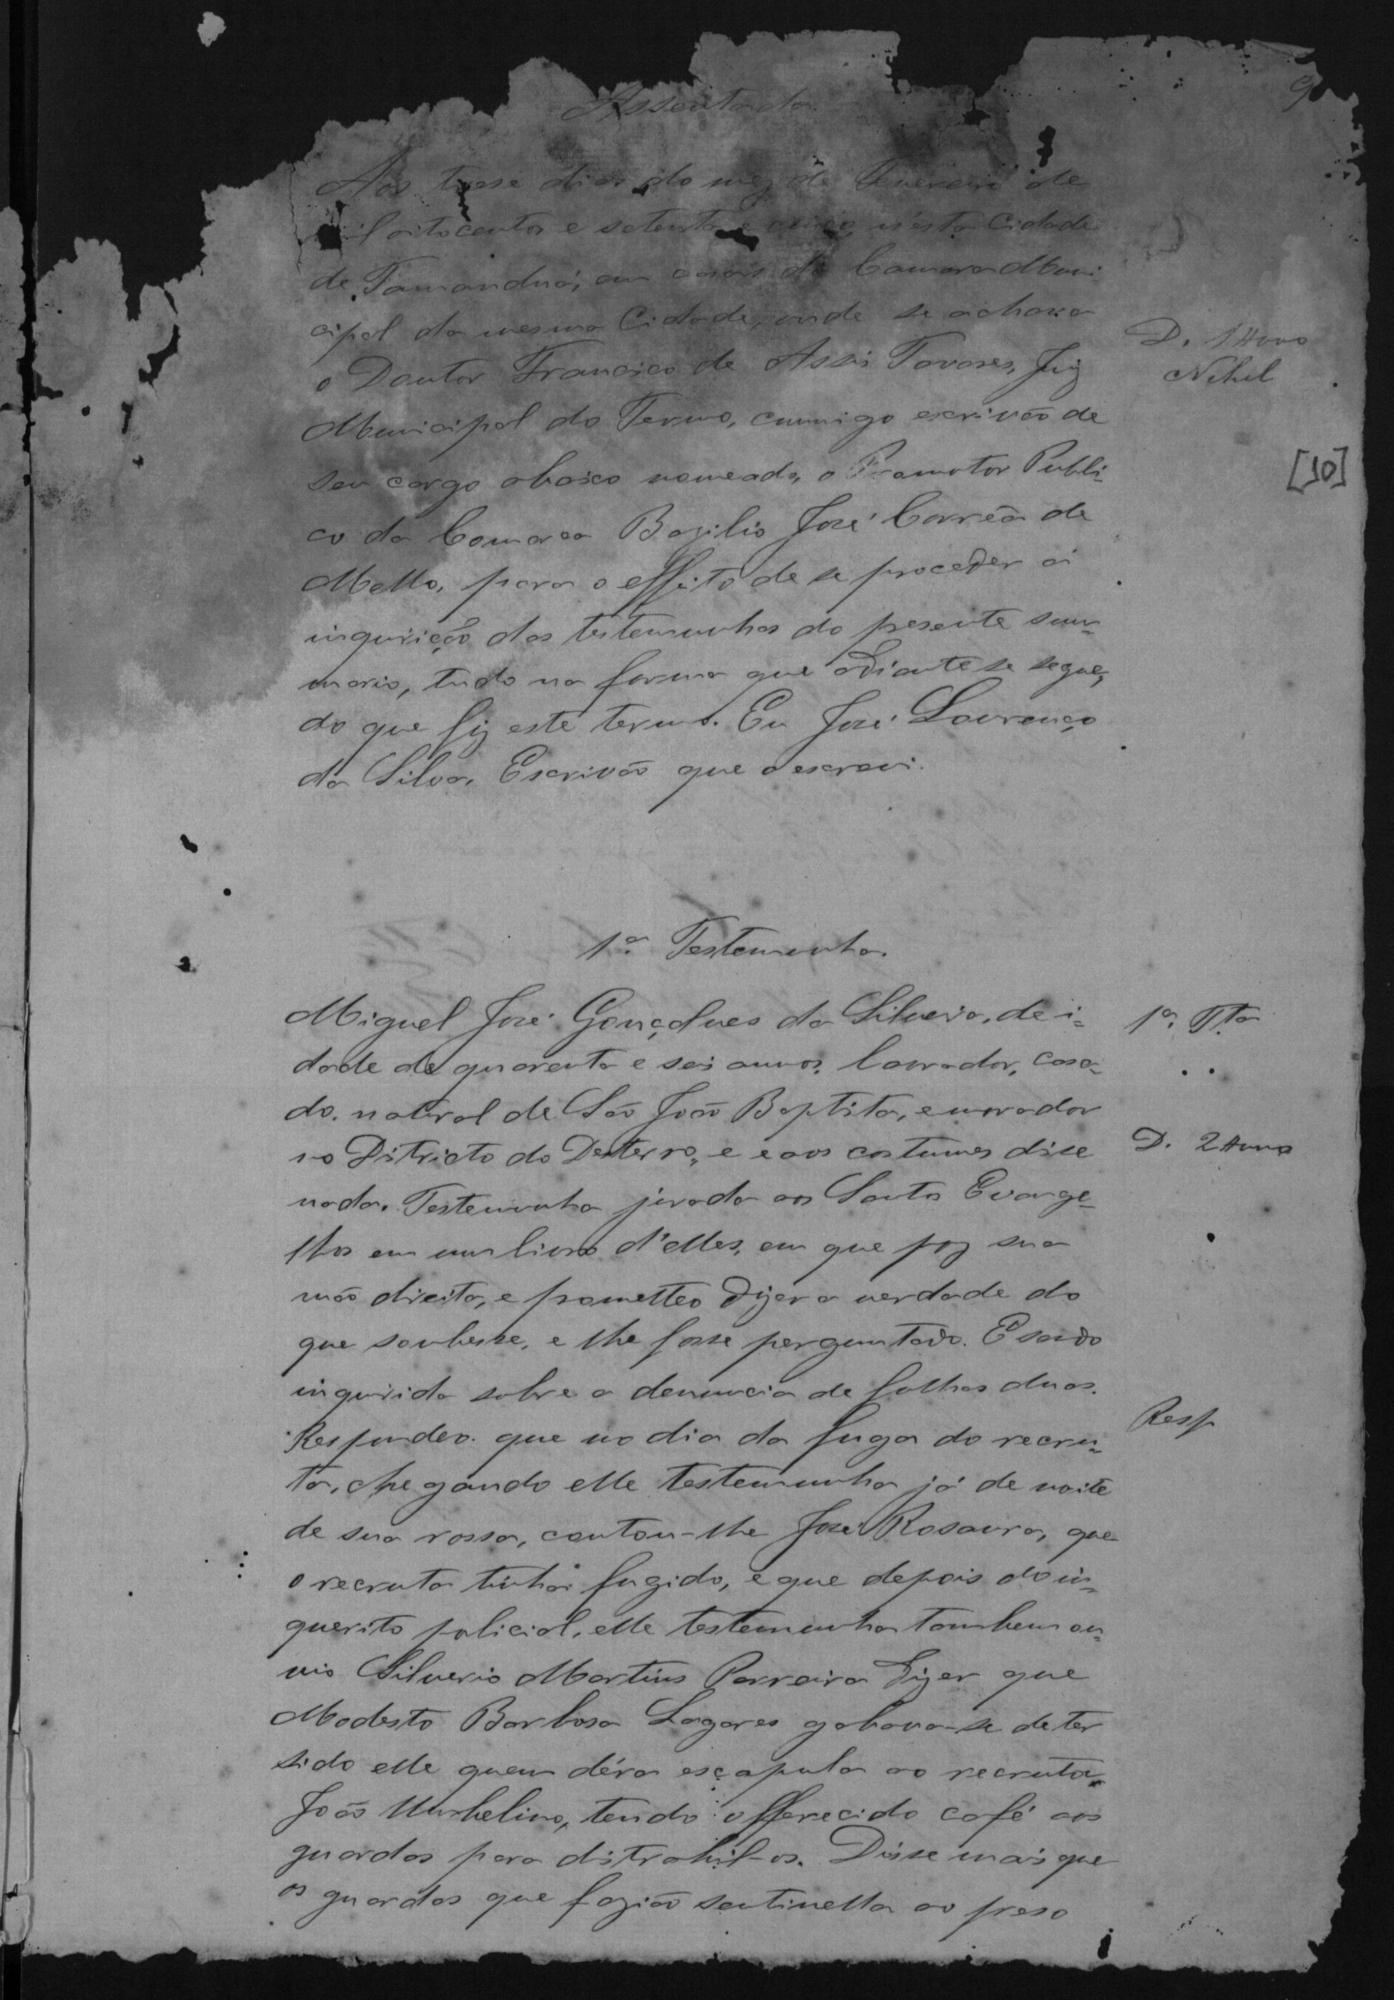 9
Assentada
Aos trese dias do mez de Fevereiro de
mil oitocentos e setenta e cinco, n'esta Cidade
de Tamanduá, em casas da Camara Muni
cipal da mesma Cidade, onde se achava
o Doutor Francisco de Assis Tavares, Juiz
Municipal do Termo, commigo escrivão de
seu cargo abaixo nomeado, o Promotor Publi-
co da Comarca Bazilio José Corrêa de
Mello, para o effeito de se proceder á
inquirição das testemunhas do presente sum-
mario, tudo na forma que adiante se segue,
do que fiz este termo. Eu José Lourenço
da Silva, Escrivão que o escrevi.
D. 1
Nihil
[10]
1ª Testemunha.
Miguel José Gonçalves da Silveira, de i-
dade de quarenta e seis annos, lavrador, casa-
do, natural de São João Baptista, e morador
no Districto do Desterro, e e aos costumes disse
nada. Testemunha jurada aos Santos Evange-
lhos em um livro d'elles, em que poz sua
mão direita, e prometteo dizer a verdade do
que soubesse, e lhe fosse perguntado. E sendo
inquirida sobre a denuncia de folhas duas.
Respondeo que no dia da fuga do recru-
ta, chegando elle testemunha já de noite
de sua rossa, contou-lhe José Rosaura, que
o recruta tinha fugido, e que depois do in-
querito policial, elle testemunha tambem ou-
vio Silverio Martins Parreira dizer que
Modesto Barbosa Lagares gabava-se de ter
sido elle quem déra escapula ao recruta
João Umbelino, tendo offerecido café aos
guardas para distrahil-os. Disse mais que
os guardas que fazião sentinella ao preso
1ª Tta
D. 2
Resp